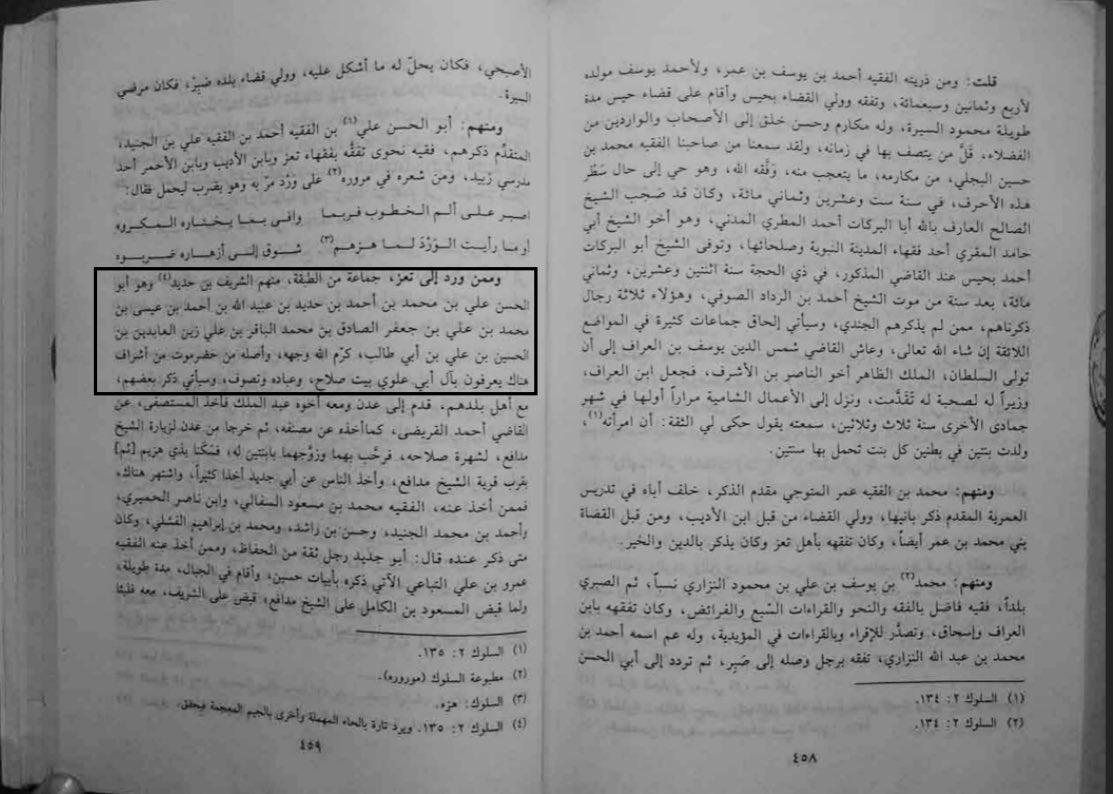 قلت: ومن ذريته الفقيه أحمد بن يوسف بن عمر، ولأحمد يوسف مولده
لأربع وثمانين وسبعمائة، وتفقه وولي القضاء بحيس وأقام على قضاء حيس مدة
طويلة محمود السيرة، وله مكارم وحسن خلق إلى الأصحاب والواردين من
الفضلاء، قَلَّ من يتصف بها في زمانه، ولقد سمعنا من صاحبنا الفقيه محمد بن
حسين البجلي، من مكارمه، ما يتعجب منه، وَفَّقه الله، وهو حي إلى حال سَطْر
هذه الأحرف، في سنة ست وعشرين وثماني مائة، وكان قد صَحِب الشيخ
الصالح العارف بالله أبا البركات أحمد المطري المدني، وهو أخو الشيخ أبي
حامد المقري أحد فقهاء المدينة النبوية وصلحائها، وتوفى الشيخ أبو البركات
أحمد بحيس عند القاضي المذكور، في ذي الحجة سنة اثنتين وعشرين، وثماني
مائة، بعد سنة من موت الشيخ أحمد بن الرداد الصوفي، وهؤلاء ثلاثة رجال
ذكرناهم، ممن لم يذكرهم الجندي، وسيأتي إلحاق جماعات كثيرة في المواضع
اللائقة إن شاء الله تعالى، وعاش القاضي شمس الدين يوسف بن العراف إلى أن
تولى السلطان، الملك الظاهر أخو الناصر بن الأشرف، فجعل ابن العراف،
وزيراً له لصحبة له تَقَدَّمت، ونزل إلى الأعمال الشامية مراراً أولها في شهر
جمادى الأخرى سنة ثلاث وثلاثين، سمعته يقول حكى لي الثقة: أن امرأته(١)،
ولدت بنتين في بطنين كل بنت تحمل بها سنتين.
ومنهم: محمد بن الفقيه عمر المتوجي مقدم الذكر، خلف أباه في تدريس
العمرية المقدم ذكر بانيها، وولي القضاء من قبل ابن الأديب، ومن قبل القضاة
بني محمد بن عمر أيضاً، وكان تفقهه بأهل تعز وكان يذكر بالدين والخير.
ومنهم: محمد(٢) بن يوسف بن علي بن محمود النزاري نسباً، ثم الصبري
بلداً، فقيه فاضل بالفقه والنحو والقراءات السَّبع والفرائض، وكان تفقهه بابن
العراف وإسحاق، وتصدَّر للإقراء وبالقراءات في المؤيدية، وله عم اسمه أحمد بن
محمد بن عبد الله النزاري، تفقه برجل وصله إلى صَبِر، ثم تردد إلى أبي الحسن
(١) السلوك ٢: ١٣٤.
(٢) السلوك ٢: ١٣٤.
٤٥٨
الأصبحي، فكان يحلّ له ما أشكل عليه، وولي قضاء بلده صَبِرْ، فكان مرضي
السيرة.
ومنهم: أبو الحسن علي(١) بن الفقيه أحمد بن الفقيه علي بن الجنيد،
المتقدِّم ذكرهم، فقيه نحوى تفقَّه بفقهاء تعز وبابن الأديب وبابن الأحمر أحد
مدرسي زَبيد، ومن شعره في مروره(٢) على وَرْد مرّ به وهو يقرب ليحمل فقال:
اصبر علـى ألـم الخـطـوب فـربمـا وافـى بمـا يـخـتـاره المـكـروه
أو ما رأيـت الـوَرْدَ لـمـا هـزهـم(٣) شـوق إلـى أزهـاره ضَـربـوه
وممن ورد إلى تعز، جماعة من الطبقة، منهم الشريف بن حديد(٤) وهو أبو
الحسن علي بن محمد بن أحمد بن حديد بن عبيد الله بن أحمد بن عيسى بن
محمد بن علي بن جعفر الصادق بن محمد الباقر بن علي زين العابدين بن
الحسين بن علي بن أبي طالب، كرّم الله وجهه، وأصله من حضرموت من أشراف
هناك يعرفون بآل أبي علوي بيت صلاح، وعباده وتصوف، وسيأتي ذكر بعضهم،
مع أهل بلدهم، قدم إلى عدن ومعه أخوه عبد الملك فأخذ المستصفى، عن
القاضي أحمد القريضى، كماأخذه عن مصنفه، ثم خرجا من عدن لزيارة الشيخ
مدافع، لشهرة صلاحه، فرحَّب بهما وزوَّجهما بابنتين له، فسَكَنا بذي هزيم [ثم]
بقرب قرية الشيخ مدافع، وأخذ الناس عن أبي جديد أخذا كثيراً، واشتهر هناك،
فممن أخذ عنه، الفقيه محمد بن مسعود السفالي، وابن ناصر الحميري،
وأحمد بن محمد الجنيد، وحسن بن راشد، ومحمد بن إبراهيم الفشلي، وكان
متى ذكر عنده قال: أبو جديد رجل ثقة من الحفاظ، وممن أخذ عنه الفقيه
عمرو بن علي التباعي الآتي ذكره بأبيات حسين، وأقام في الجبال، مدة طويلة،
ولما قبض المسعود بن الكامل على الشيخ مدافع، قبض على الشريف، معه فلبثا
(١) السلوك ٢: ١٣٥.
(٢) مطبوعة السلوك (موروره).
(٣) السلوك: هزه.
(٤) السلوك ٢: ١٣٥. ويرد تارة بالحاء المهملة وأخرى بالجيم المعجمة فيحقق.
٤٥٩